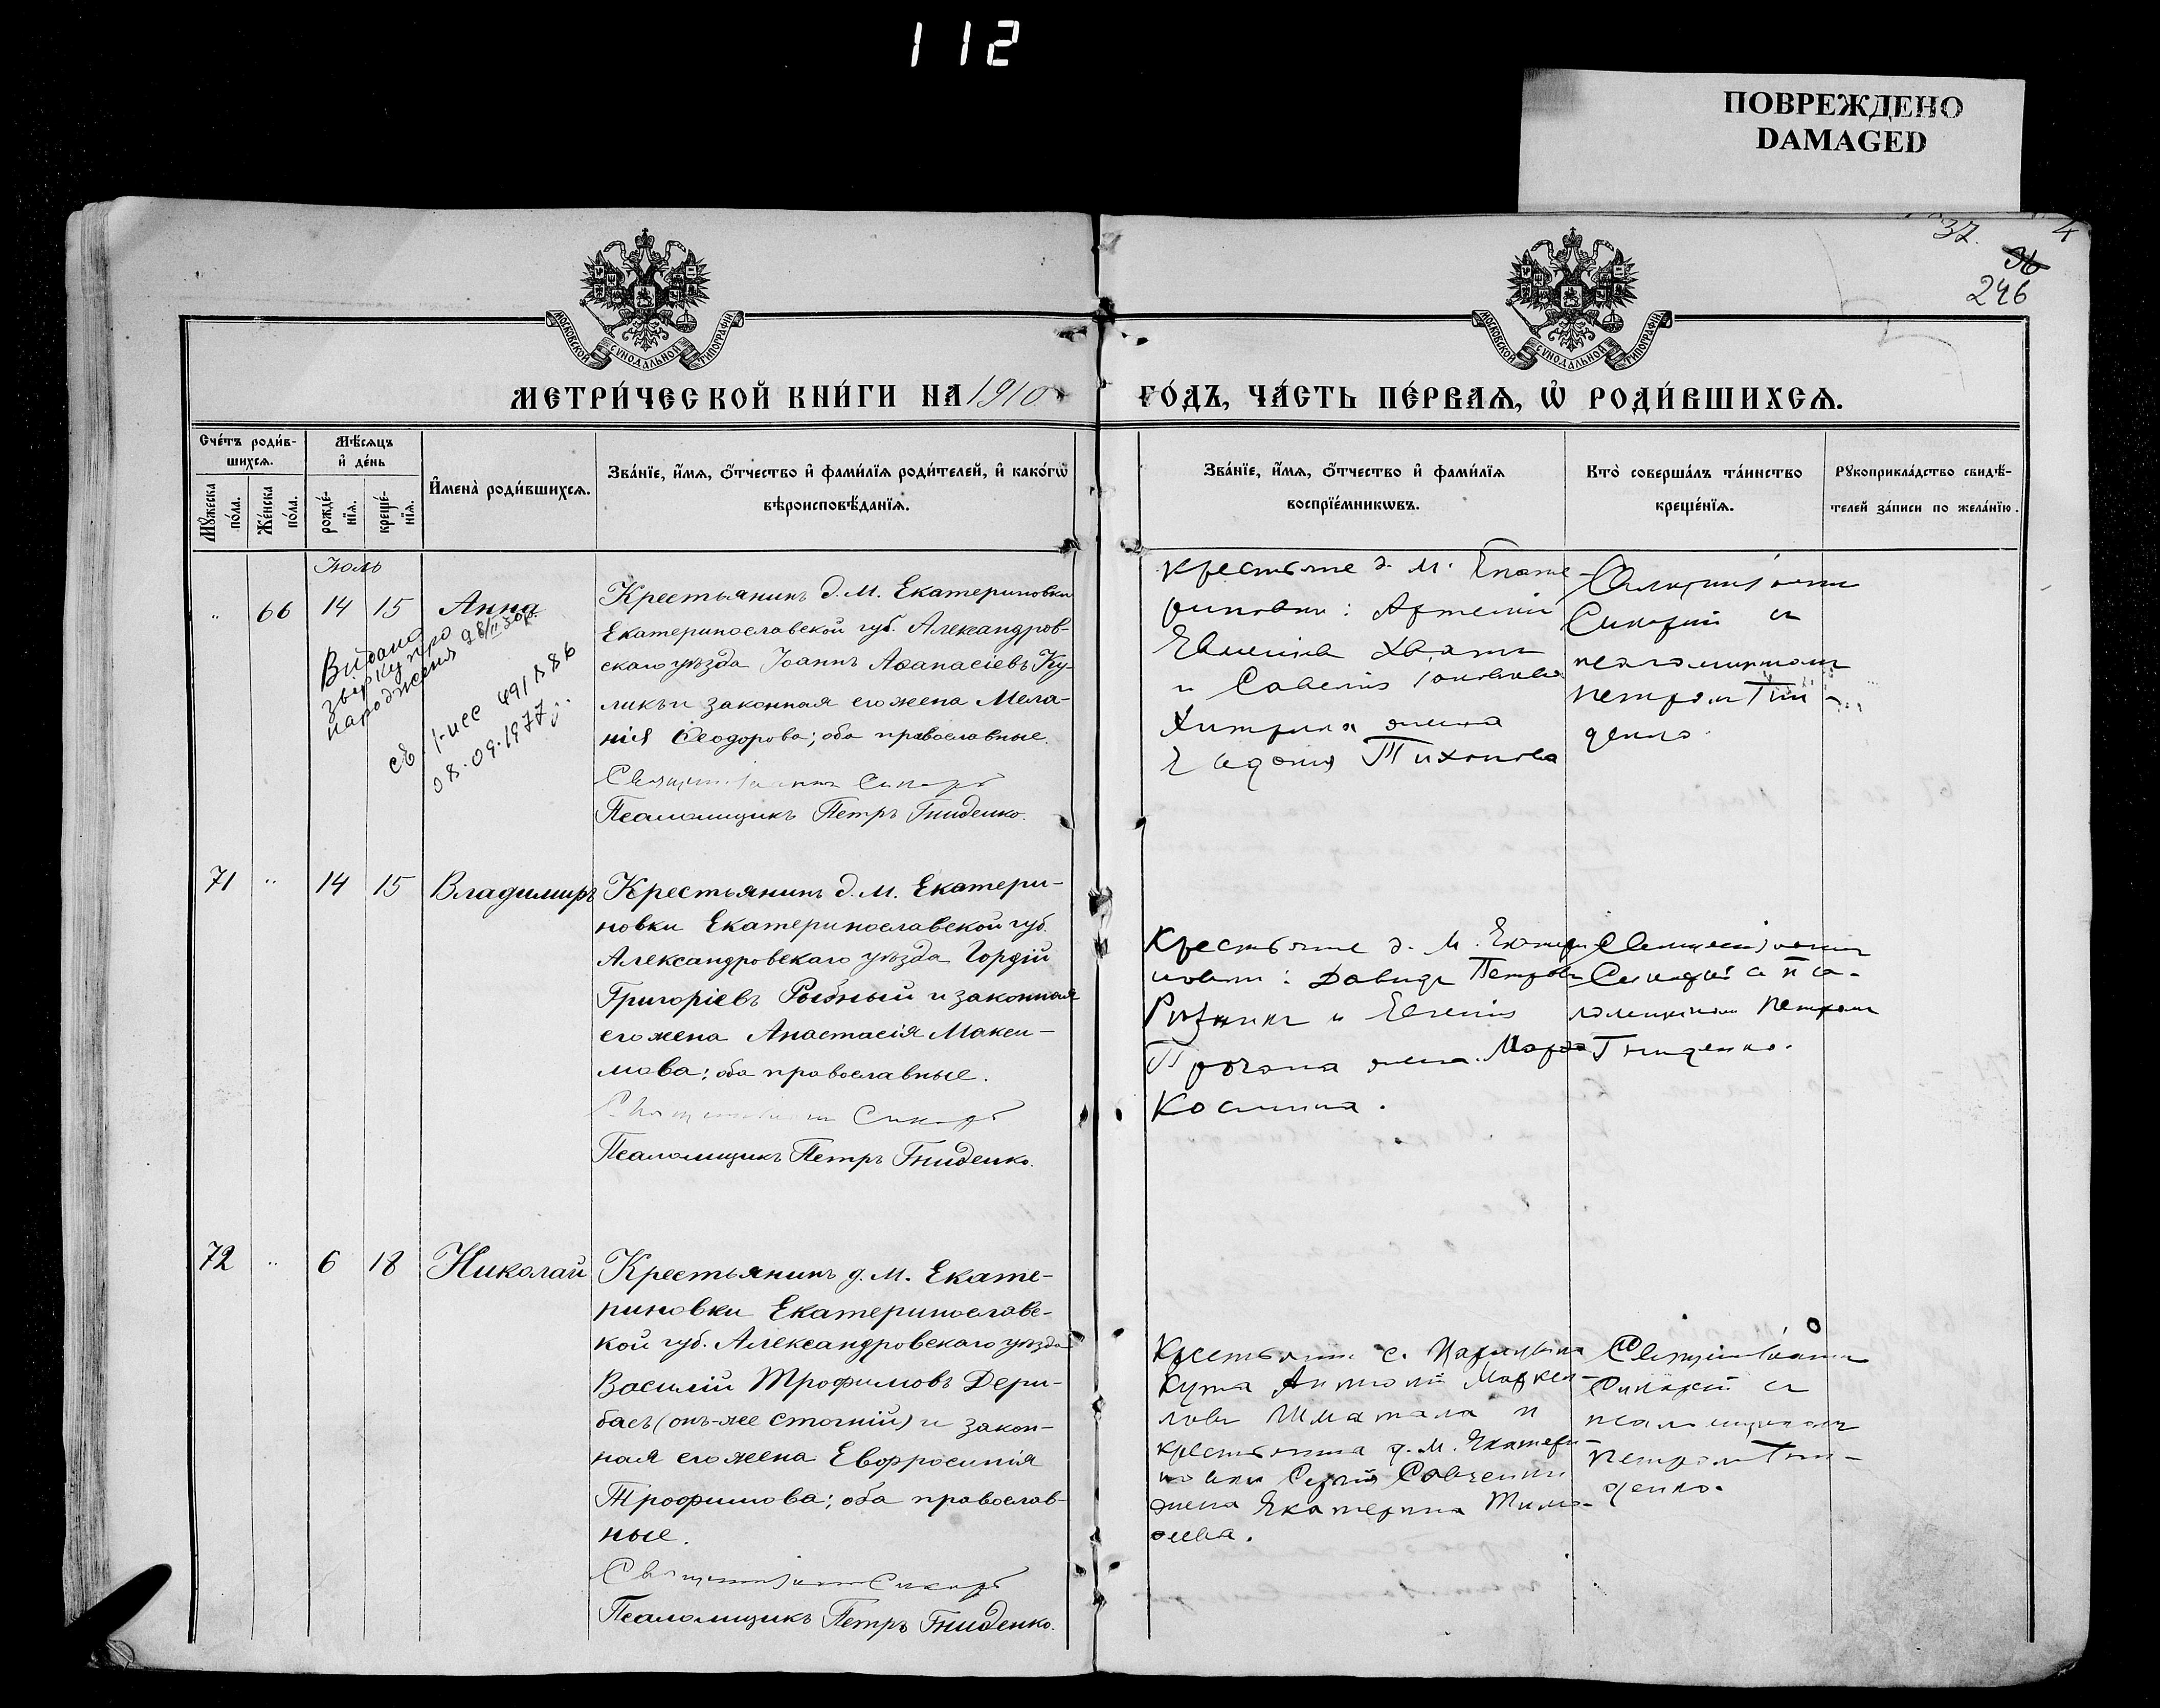 112
ПОВРЕЖДЕНО
DAMAGED
37.
4
36
246
МОСКОВСКОЙ СУНОДАЛЬНОЙ ТИПОГРАФІИ
МОСКОВСКОЙ СУНОДАЛЬНОЙ ТИПОГРАФІИ
МЕТРИ́ЧЕСКОЙ КНИ́ГИ НА 1910
ГО́ДЪ, ЧА́СТЬ ПЕ́РВАѦ, Ѡ҆ РОДИ́ВШИХСѦ.
Сче́тъ роди́в-
шихсѧ.
Мѣ́сѧцъ
и҆ де́нь
Мꙋ́жеска
по́ла.
Же́нска
по́ла.
рожде́-
нїѧ.
креще́-
нїѧ.
И҆мена̀ роди́вшихсѧ.
Зва́нїе, и҆́мѧ, ѻ҆́тчество и҆ фами́лїѧ роди́телей, и҆ како́гѡ
вѣроисповѣ́данїѧ.
Зва́нїе, и҆́мѧ, ѻ҆́тчество и҆ фами́лїѧ
воспрїе́мникѡвъ.
Кто̀ соверша́лъ та́инство
креще́нїѧ.
Рꙋкоприкла́дство свидѣ́-
телей за́писи по жела́нїю.
Іюль
66 14 15 Анна
Видано
звірку про
народження 28/II 30р.
св. 1-исс 491886
08.09.1977
Крестьянинъ д. М. Екатериновки
Екатеринославской губ. Александров-
скаго уѣзда Іоаннъ Аѳанасіевъ Ку-
ликъ и законная его жена Мела-
нія Ѳеодорова; оба православные.
Священникъ Сикаръ
Псаломщикъ Петръ Гниденко.
крестьяне д. М. Екате-
риновки: Артемій
Хитрика жена
Евдокія Тихонова
Священникъ
с
псаломщикомъ
Петромъ Гни-
денко.
71 14 15 Владимиръ
Крестьянинъ д. М. Екатери-
новки Екатеринославской губ.
Александровскаго уѣзда Гордій
Григоріевъ Рыбный и законная
его жена Анастасія Макси-
мова; оба православные.
Священникъ Сикаръ
Псаломщикъ Петръ Гниденко.
Крестьяне д. М. Екатери
новки: Давидъ Петровъ
и Евгенія
жена Марѳа
Космина.
Священникъ
с пса-
ломщикомъ Петромъ
Гниденко.
72 6 18 Николай
Крестьянинъ д. М. Екате-
риновки Екатеринослав-
кой губ. Александровскаго уѣзда
Василій Трофимовъ Дери-
басъ (онъ-же Стогній) и закон-
ная его жена Евфросинія
Трофимова; оба православ-
ные.
Священникъ Сикаръ
Псаломщикъ Петръ Гниденко.
Крестьяне с.
Кута Антоній Маркел-
ловъ Шматала и
крестьянина д. М. Екатери-
новки Сергія Савченки
жена Екатерина Тимо-
ѳеева.
Священникъ
с
псаломщикомъ
Петромъ Гни-
денко.